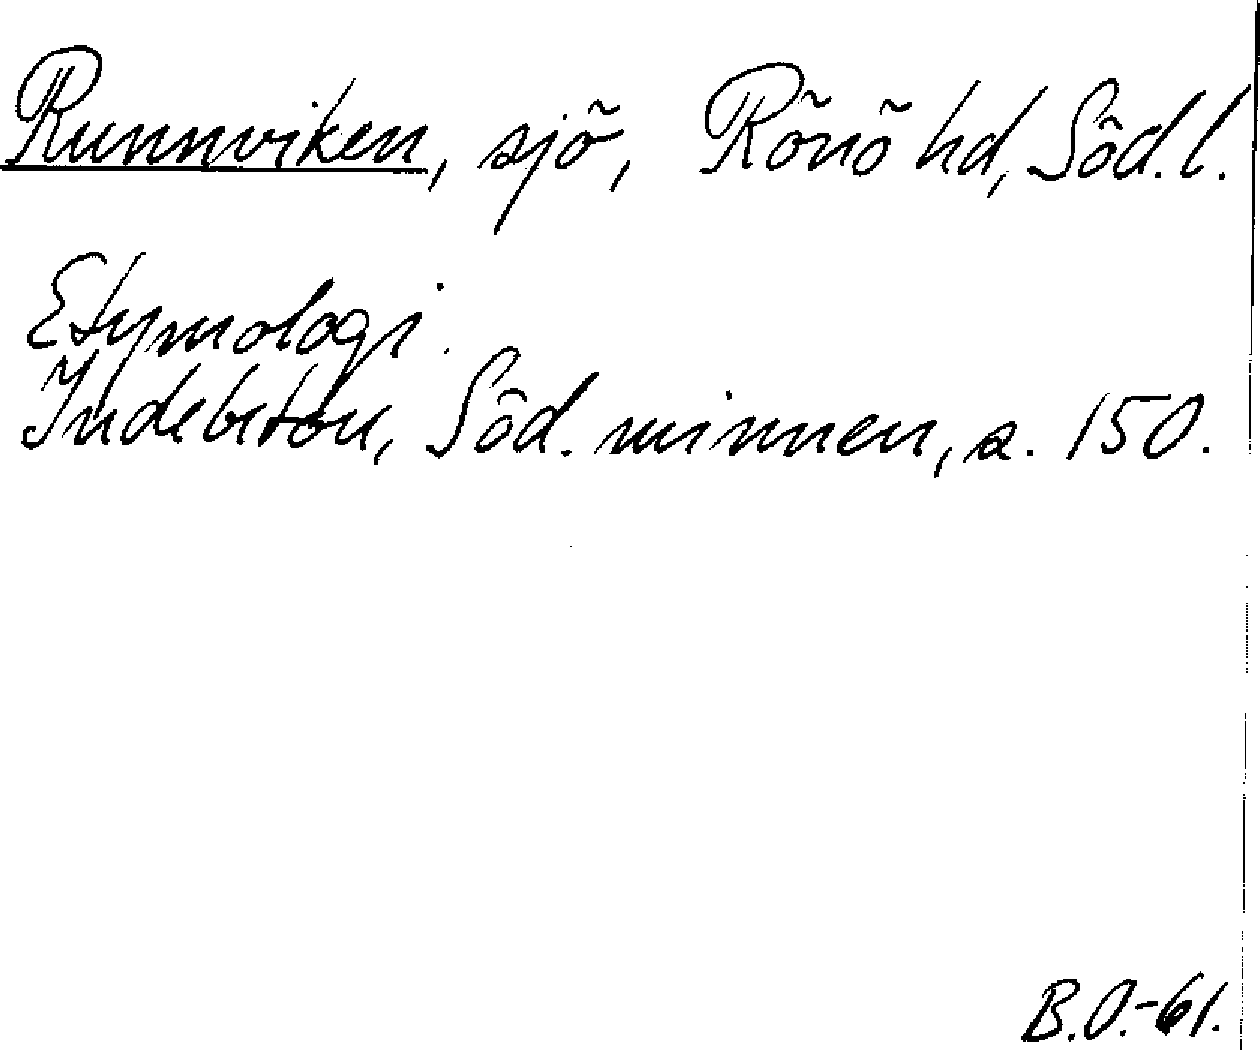 Runnviken, sjö, Rönö hd, Söd.l.
Etymologi.
Indebetou, Söd. minnen, s. 150.
B.O.-61.